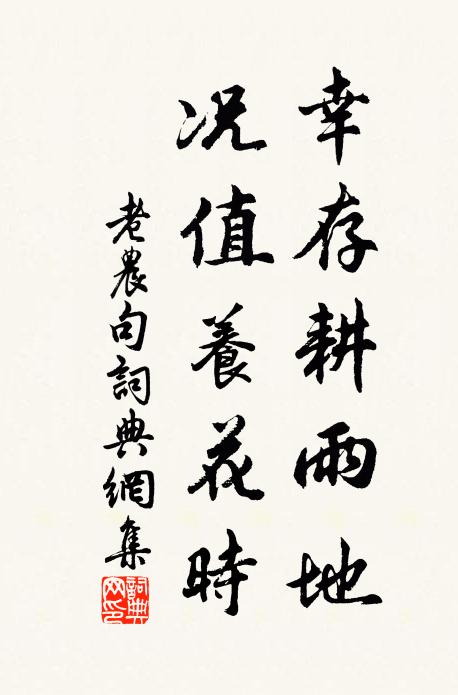 幸存耕雨地
况值養花時
老農句詞典網集
詞典網印